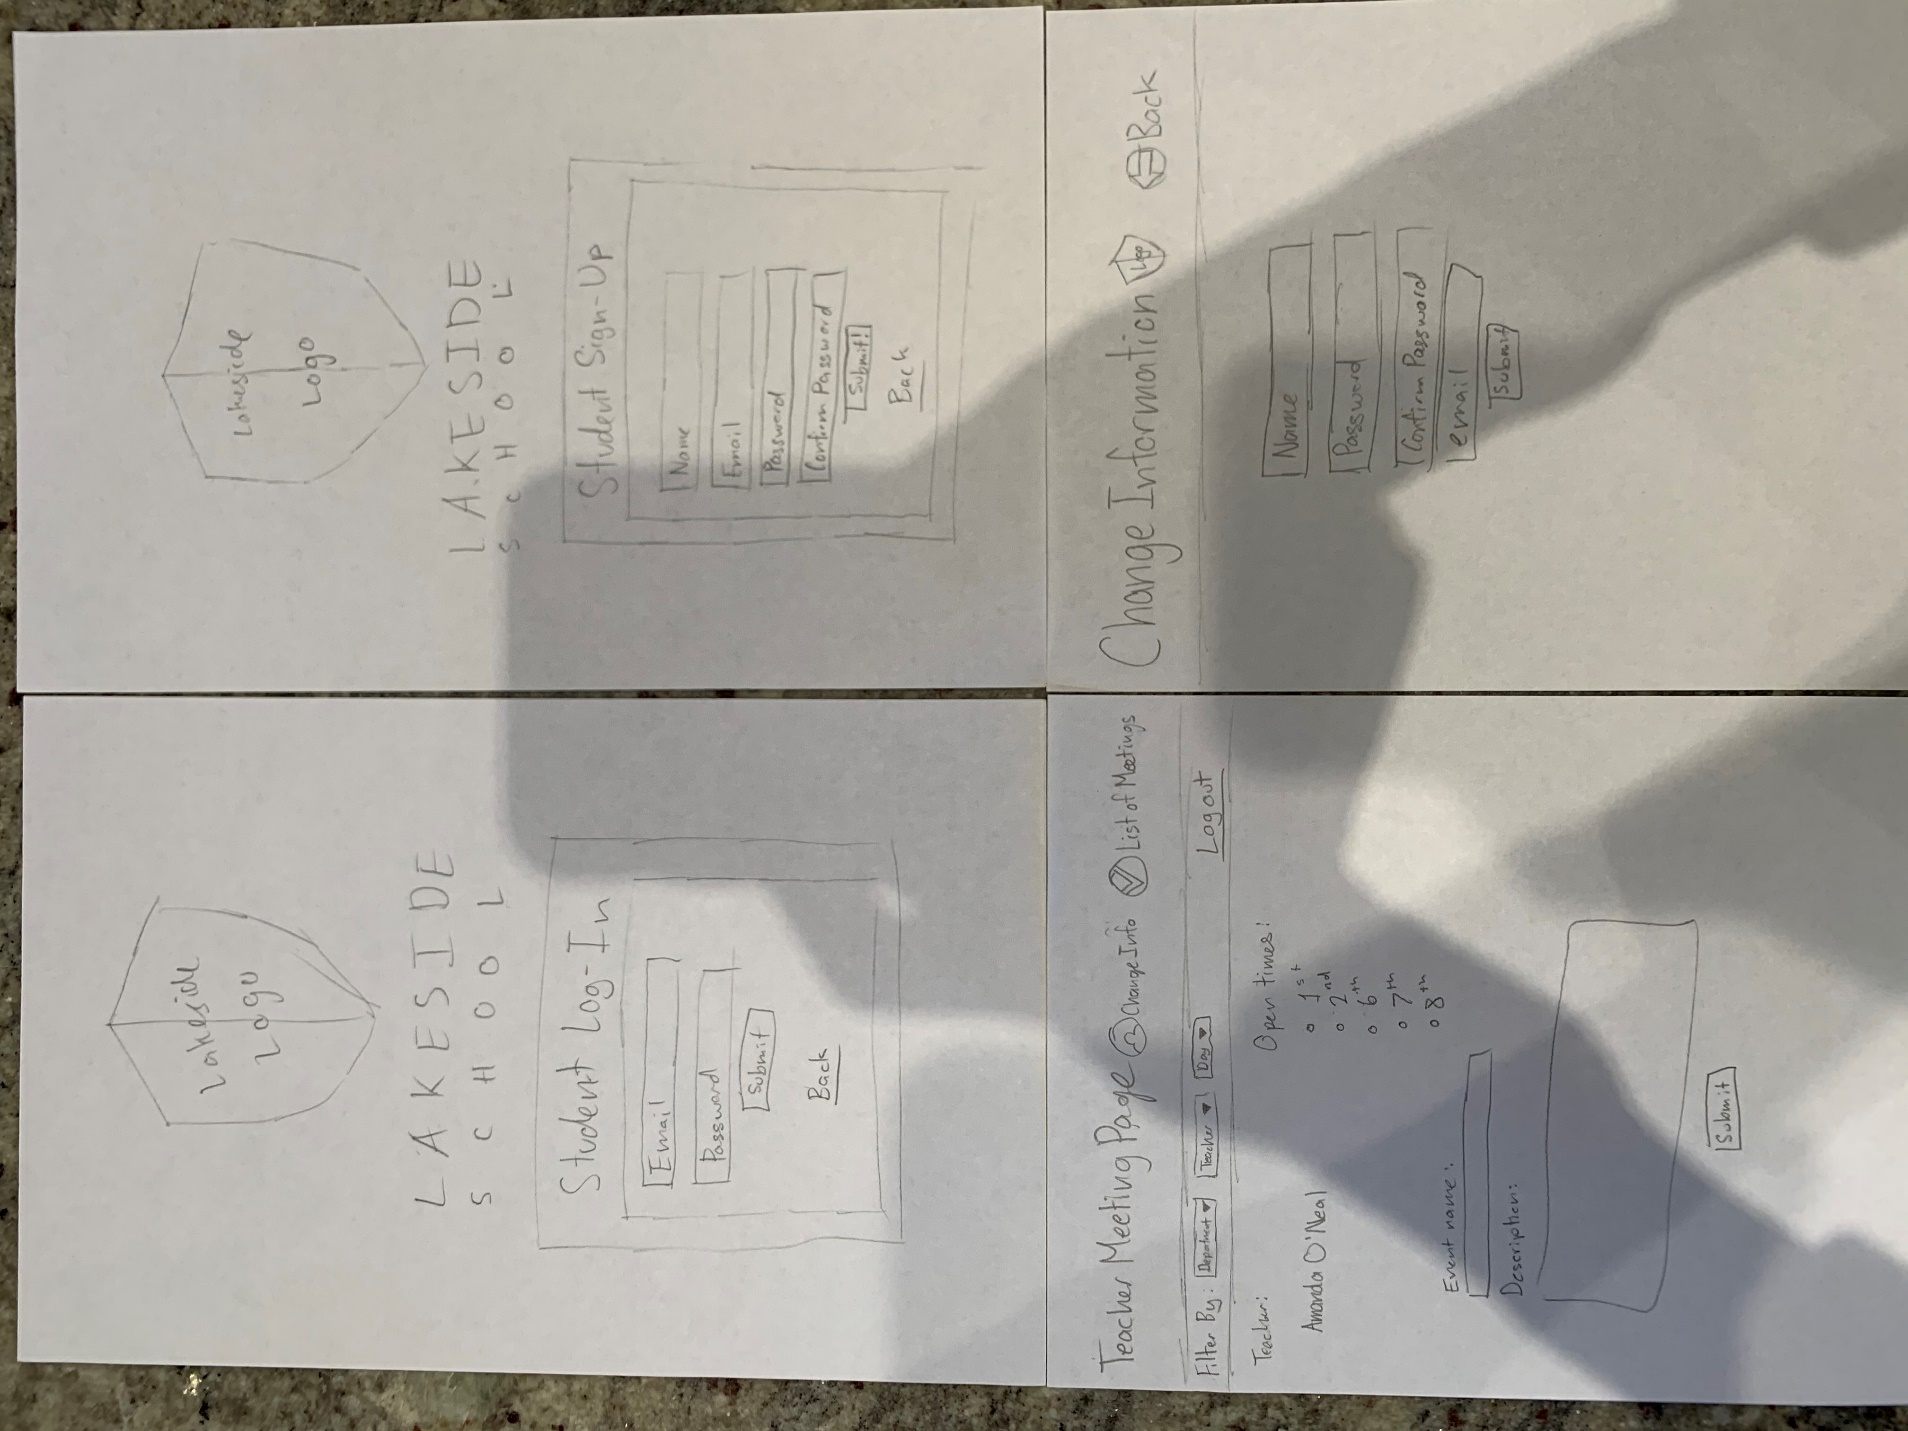 Lakeside
Logo
LAKESIDE
SCHOOL
Student Log-In
Email
Password
Submit
Back
Lakeside
Logo
LA.KESIDE
SCHOOL
Student Sign-Up
Name
Email
Password
Confirm Password
Submit!
Back
Teacher Meeting Page Change Info List of Meetings
Filter By: Department Teacher Day Log out
Teacher: Open times:
Amanda O'Neal
1st
2nd
6th
7th
8th
Event name:
Description:
Submit
Change Information Logo Back
Name
Password
Confirm Password
email
Submit